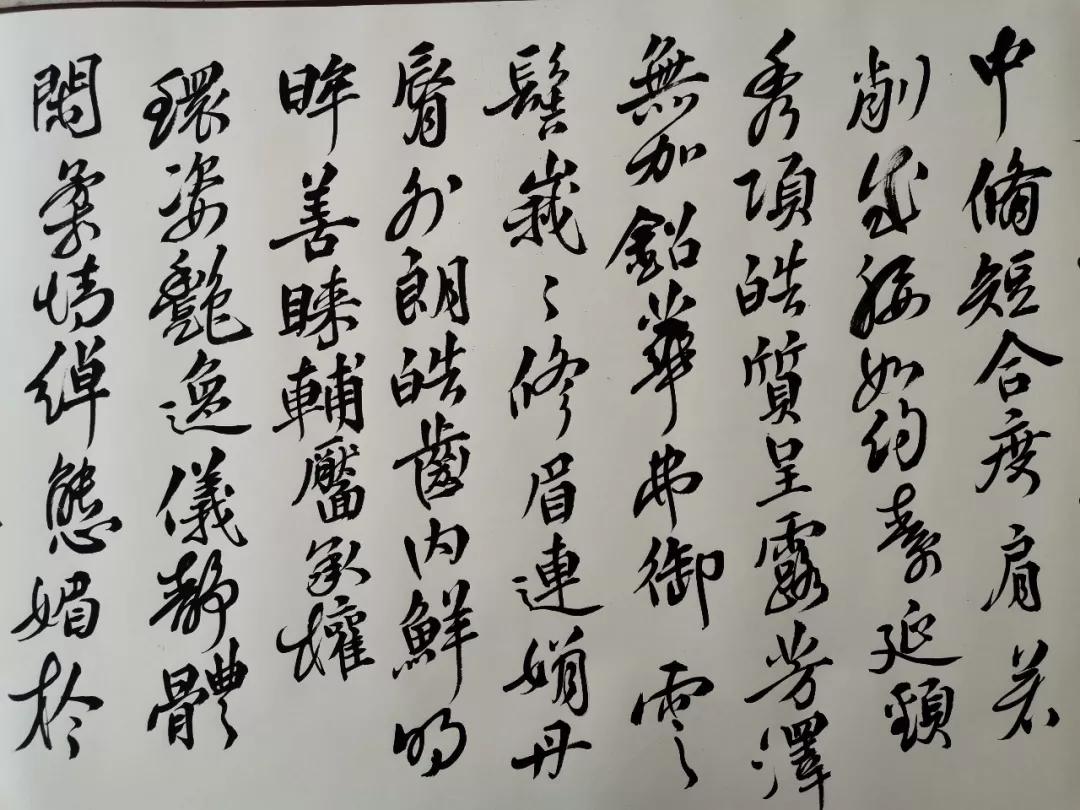 中脩短合度肩若
削成腰如約素延頸
秀項皓質呈露芳澤
無加鉛華弗御雲
髻峩〻修眉連娟丹
脣外朗皓齒内鮮明
眸善睞輔靨承權
瓌姿艷逸儀靜體
閑柔情綽態媚於